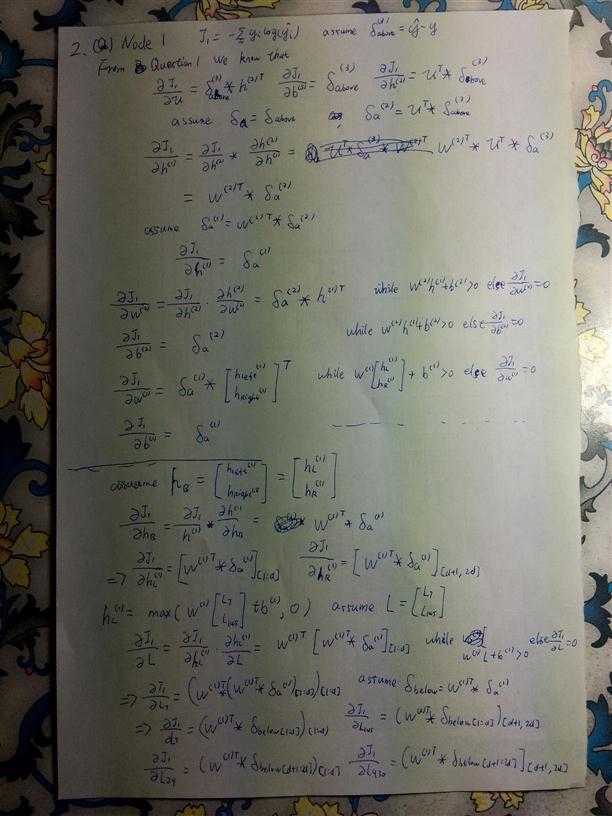 2. (a) Node 1 J₁ = -Σ yᵢ log(ŷᵢ) assume δabove⁽³⁾ = ŷ - y
From Question 1 we know that
∂J₁/∂U = δabove⁽³⁾ * h⁽²⁾ᵀ ∂J₁/∂b⁽³⁾ = δabove⁽³⁾ ∂J₁/∂h⁽²⁾ = Uᵀ * δabove⁽³⁾
assume δa = δabove δa⁽²⁾ = Uᵀ * δa⁽³⁾
∂J₁/∂h⁽¹⁾ = ∂J₁/∂h⁽²⁾ * ∂h⁽²⁾/∂h⁽¹⁾ = W⁽²⁾ᵀ * Uᵀ * δa⁽³⁾
= W⁽²⁾ᵀ * δa⁽²⁾
assume δa⁽¹⁾ = W⁽²⁾ᵀ * δa⁽²⁾
∂J₁/∂h⁽¹⁾ = δa⁽¹⁾
∂J₁/∂W⁽²⁾ = ∂J₁/∂h⁽²⁾ · ∂h⁽²⁾/∂W⁽²⁾ = δa⁽²⁾ * h⁽¹⁾ᵀ while W⁽²⁾h⁽¹⁾+b⁽²⁾>0 else ∂J₁/∂W⁽²⁾=0
∂J₁/∂b⁽²⁾ = δa⁽²⁾ while W⁽²⁾h⁽¹⁾+b⁽²⁾>0 else ∂J₁/∂b⁽²⁾=0
∂J₁/∂W⁽¹⁾ = δa⁽¹⁾ * [hleft⁽¹⁾ hright⁽¹⁾]ᵀ while W⁽¹⁾[hL⁽¹⁾ hR⁽¹⁾] + b⁽¹⁾>0 else ∂J₁/∂W⁽¹⁾=0
∂J₁/∂b⁽¹⁾ = δa⁽¹⁾
assuame hB = [hleft⁽¹⁾ hright⁽¹⁾] = [hL⁽¹⁾ hR⁽¹⁾]
∂J₁/∂hB = ∂J₁/h⁽¹⁾ * ∂h⁽¹⁾/∂hB = W⁽¹⁾ᵀ * δa⁽¹⁾
=> ∂J₁/∂hL⁽¹⁾ = [W⁽¹⁾ᵀ * δa⁽¹⁾][1:d] ∂J₁/∂hR⁽¹⁾ = [W⁽¹⁾ᵀ * δa⁽¹⁾][d+1, 2d]
hL⁽¹⁾ = max(W⁽¹⁾[L₇ L₁₀₅] + b⁽¹⁾, 0) assume L = [L₇ L₁₀₅]
∂J₁/∂L = ∂J₁/∂hL⁽¹⁾ · ∂hL⁽¹⁾/∂L = W⁽¹⁾ᵀ [W⁽¹⁾ᵀ * δa⁽¹⁾][1:d] while W⁽¹⁾L+b⁽¹⁾>0 else ∂J₁/∂L=0
=> ∂J₁/∂L₇ = (W⁽¹⁾ᵀ*(W⁽¹⁾ᵀ * δa⁽¹⁾)[1:d])[1:d] assume δbelow = W⁽¹⁾ᵀ * δa⁽¹⁾
=> ∂J₁/∂L₇ = (W⁽¹⁾ᵀ * δbelow[1:d])[1:d] ∂J₁/∂L₁₀₅ = (W⁽¹⁾ᵀ * δbelow[1:d])[d+1, 2d]
∂J₁/∂L₂₉ = (W⁽¹⁾ᵀ * δbelow[d+1:2d])[1:d] ∂J₁/∂L₄₃₀ = (W⁽¹⁾ᵀ * δbelow[d+1:2d])[d+1, 2d]